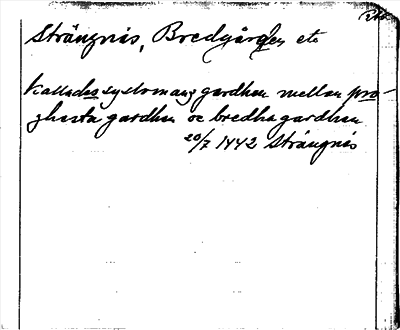 Strängnäs, Bredgården etc
Kallades systomanz gardhen mellan pro-
ghasta gardhen oc bredha gardhen
20/7 1442 Strängnäs